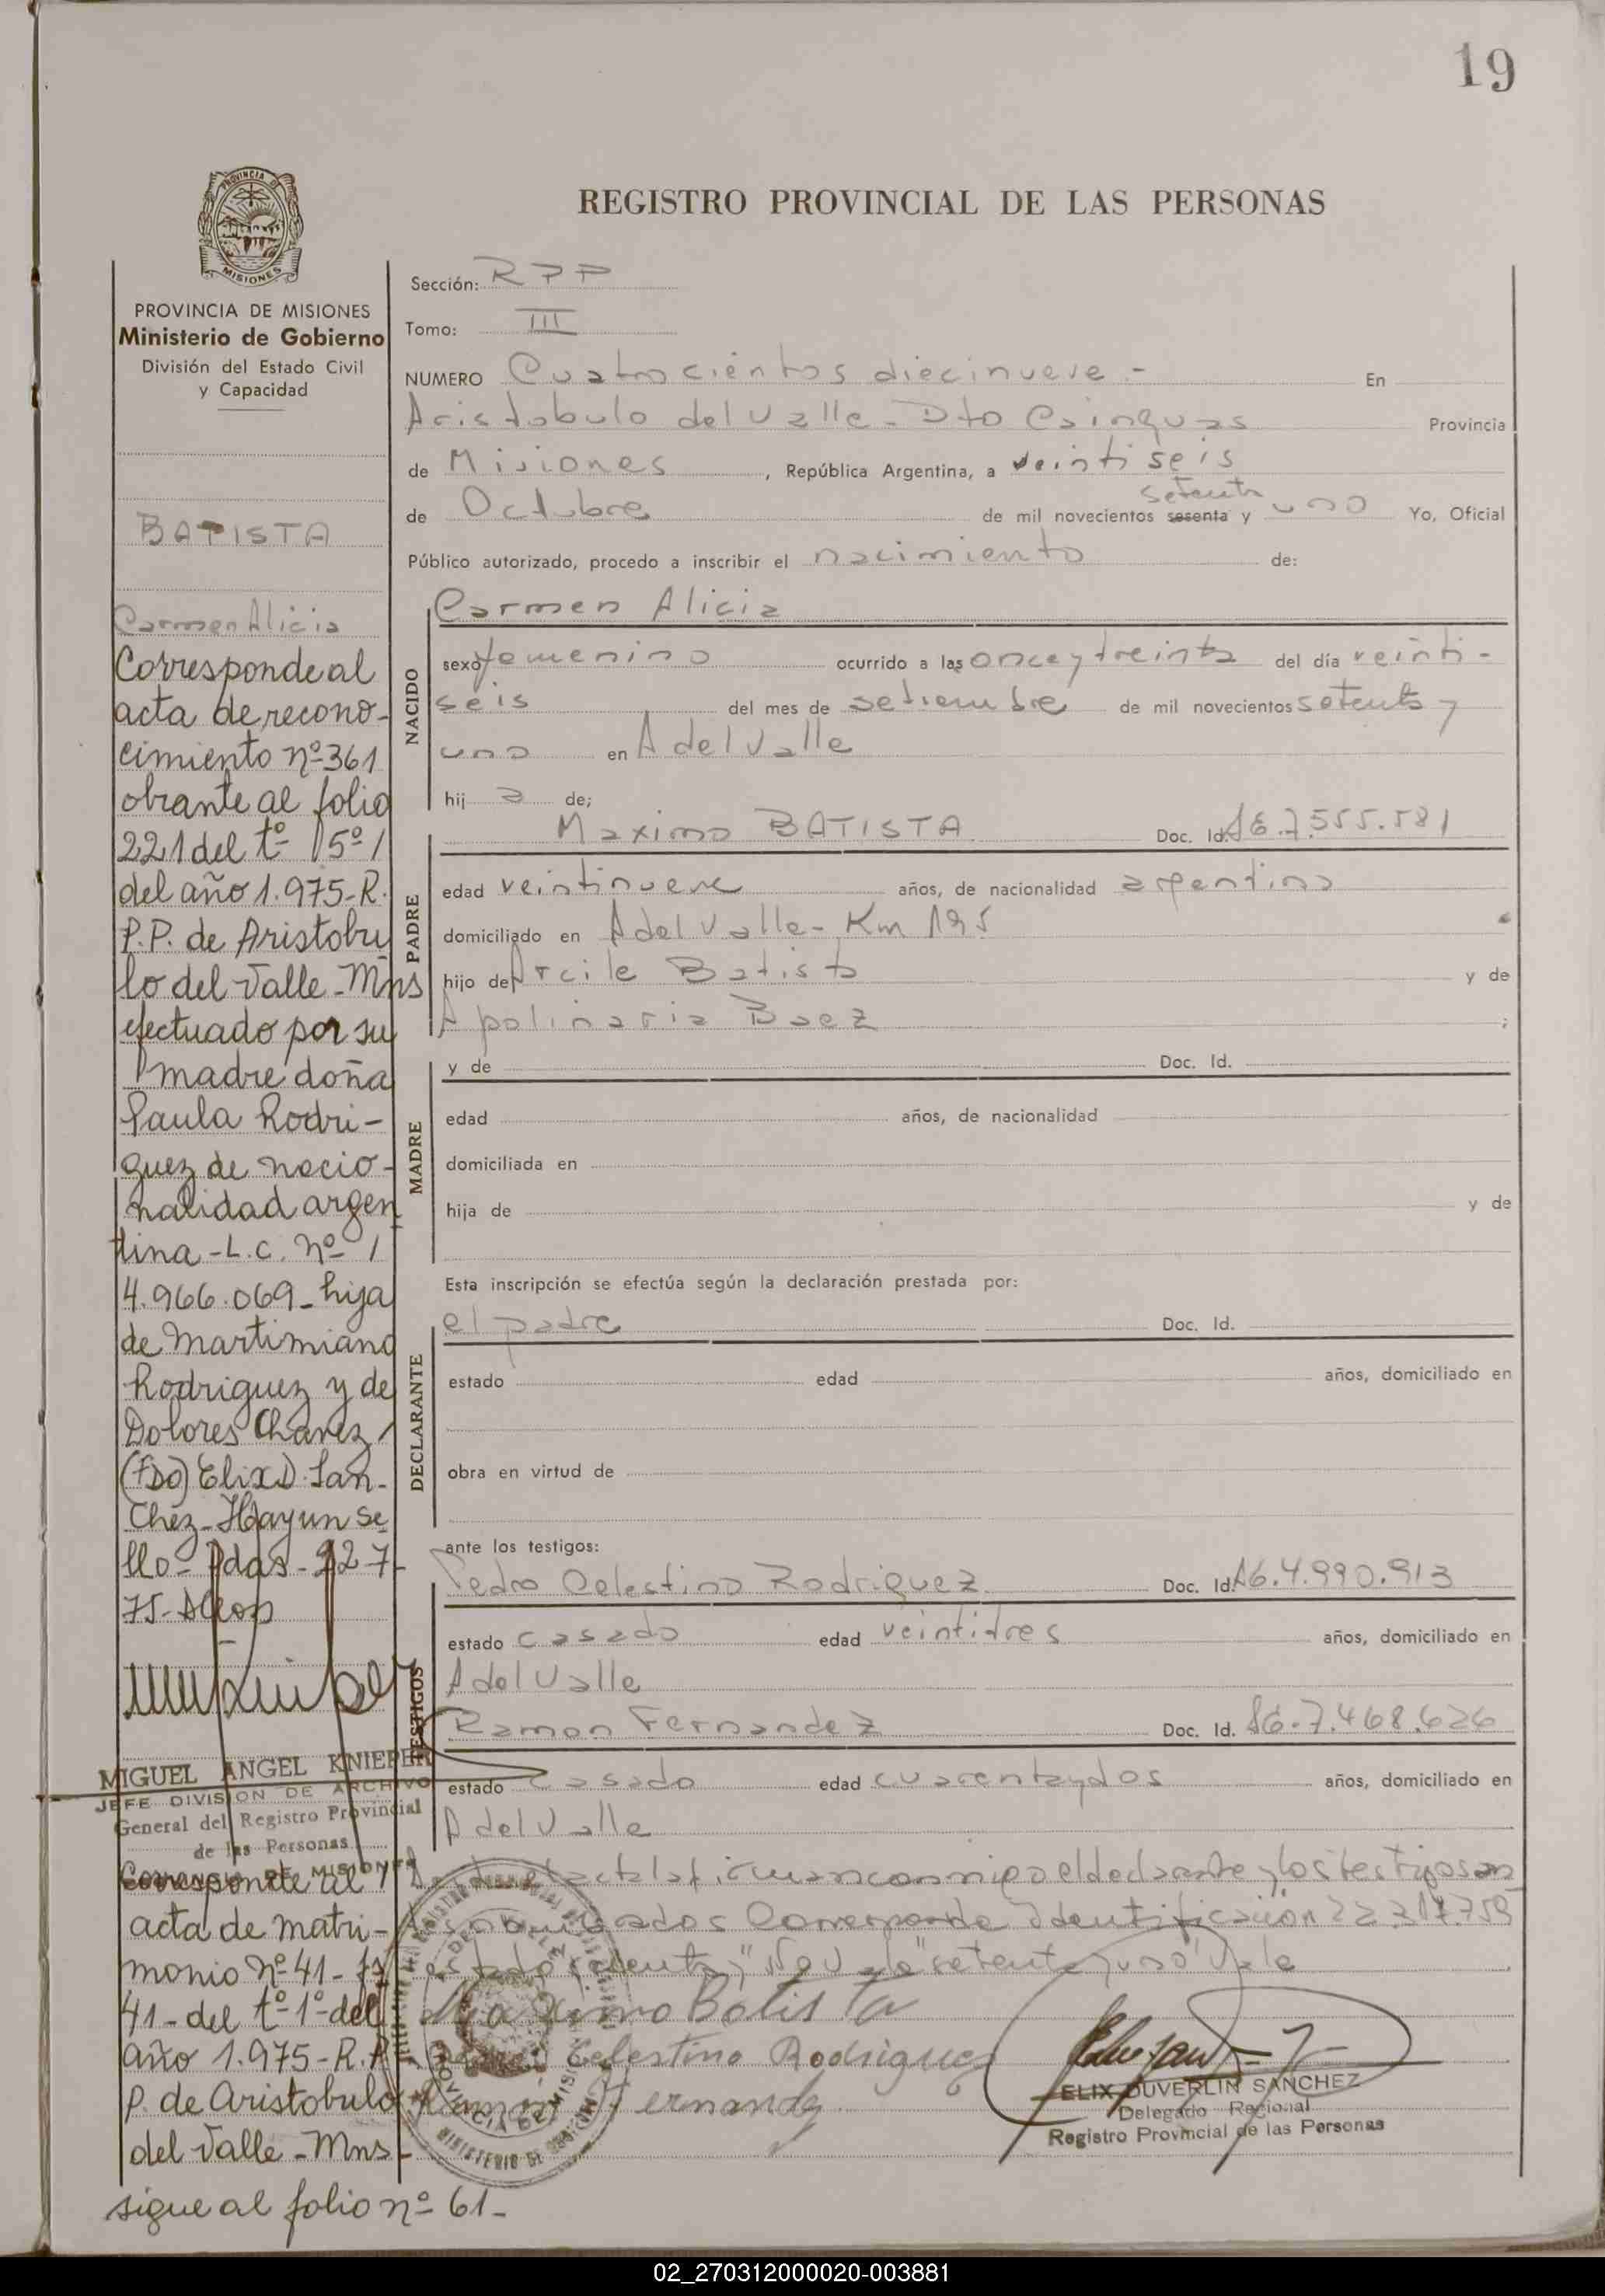 19
REGISTRO PROVINCIAL DE LAS PERSONAS
PROVINCIA DE MISIONES
Ministerio de Gobierno
División del Estado Civil
y Capacidad
BATISTA
Carmen Alicia
Corresponde al
acta de recono-
cimiento nº 361
obrante al folio
221 del tº 5º /
del año 1.975-R.
P.P. de Aristobu
lo del Valle-Mns
efectuado por su
madre doña
Paula Rodri-
guez de nacio-
nalidad argen
tina-L.C. nº /
4.966.069-hija
de Martimiano
Rodriguez y de
Dolores Chavez/
(FDO) Elix D. San-
chez-Hay un se
llo-Pdas-
75-
MIGUEL ANGEL KNIEPER
JEFE DIVISION DE ARCHIVO
General del Registro Provincial
de las Personas
Corresponde al
acta de matri-
monio nº 41-
41-del tº 1º del
año 1.975-R.P.
P. de Aristobulo
del Valle-Mns-
sigue al folio nº 61-
Sección: RPP
Tomo: III
NUMERO Cuatrocientos diecinueve.- En
Aristobulo del Valle-Dto Cainguas Provincia
de Misiones, República Argentina, a veintiseis
setenta
de Octubre de mil novecientos sesenta y uno Yo, Oficial
Público autorizado, procedo a inscribir el nacimiento de:
NACIDO
Carmen Alicia
sexo femenino ocurrido a las once y treinta del día veinti-
seis del mes de setiembre de mil novecientos setenta y
uno en A del Valle
hij a de;
PADRE
Maximo BATISTA Doc. Id. 7.555.581
edad veintinueve años, de nacionalidad argentina
domiciliado en A del Valle-Km 195
hijo de Arcile Batista y de
Apolinaria Baez ;
MADRE
y de Doc. Id.
edad años, de nacionalidad
domiciliada en
hija de y de
Esta inscripción se efectúa según la declaración prestada por:
DECLARANTE
el padre Doc. Id.
estado edad años, domiciliado en
obra en virtud de
ante los testigos:
TESTIGOS
Pedro Celestino Rodriguez Doc. Id. 4.990.913
estado casado edad veintitres años, domiciliado en
A del Valle
Ramon Fernandez Doc. Id. 7.468.626
estado casado edad cuarentaydos años, domiciliado en
A del Valle
acta la firman conmigo el declarante y los testigos
Corresponde Identificación 22.317.759
"setenta y uno" Vale
Maximo Batista
Celestino Rodriguez
Fernandez
ELIX DUVERLIN SANCHEZ
Delegado Regional
Registro Provincial de las Personas
02_270312000020-003881